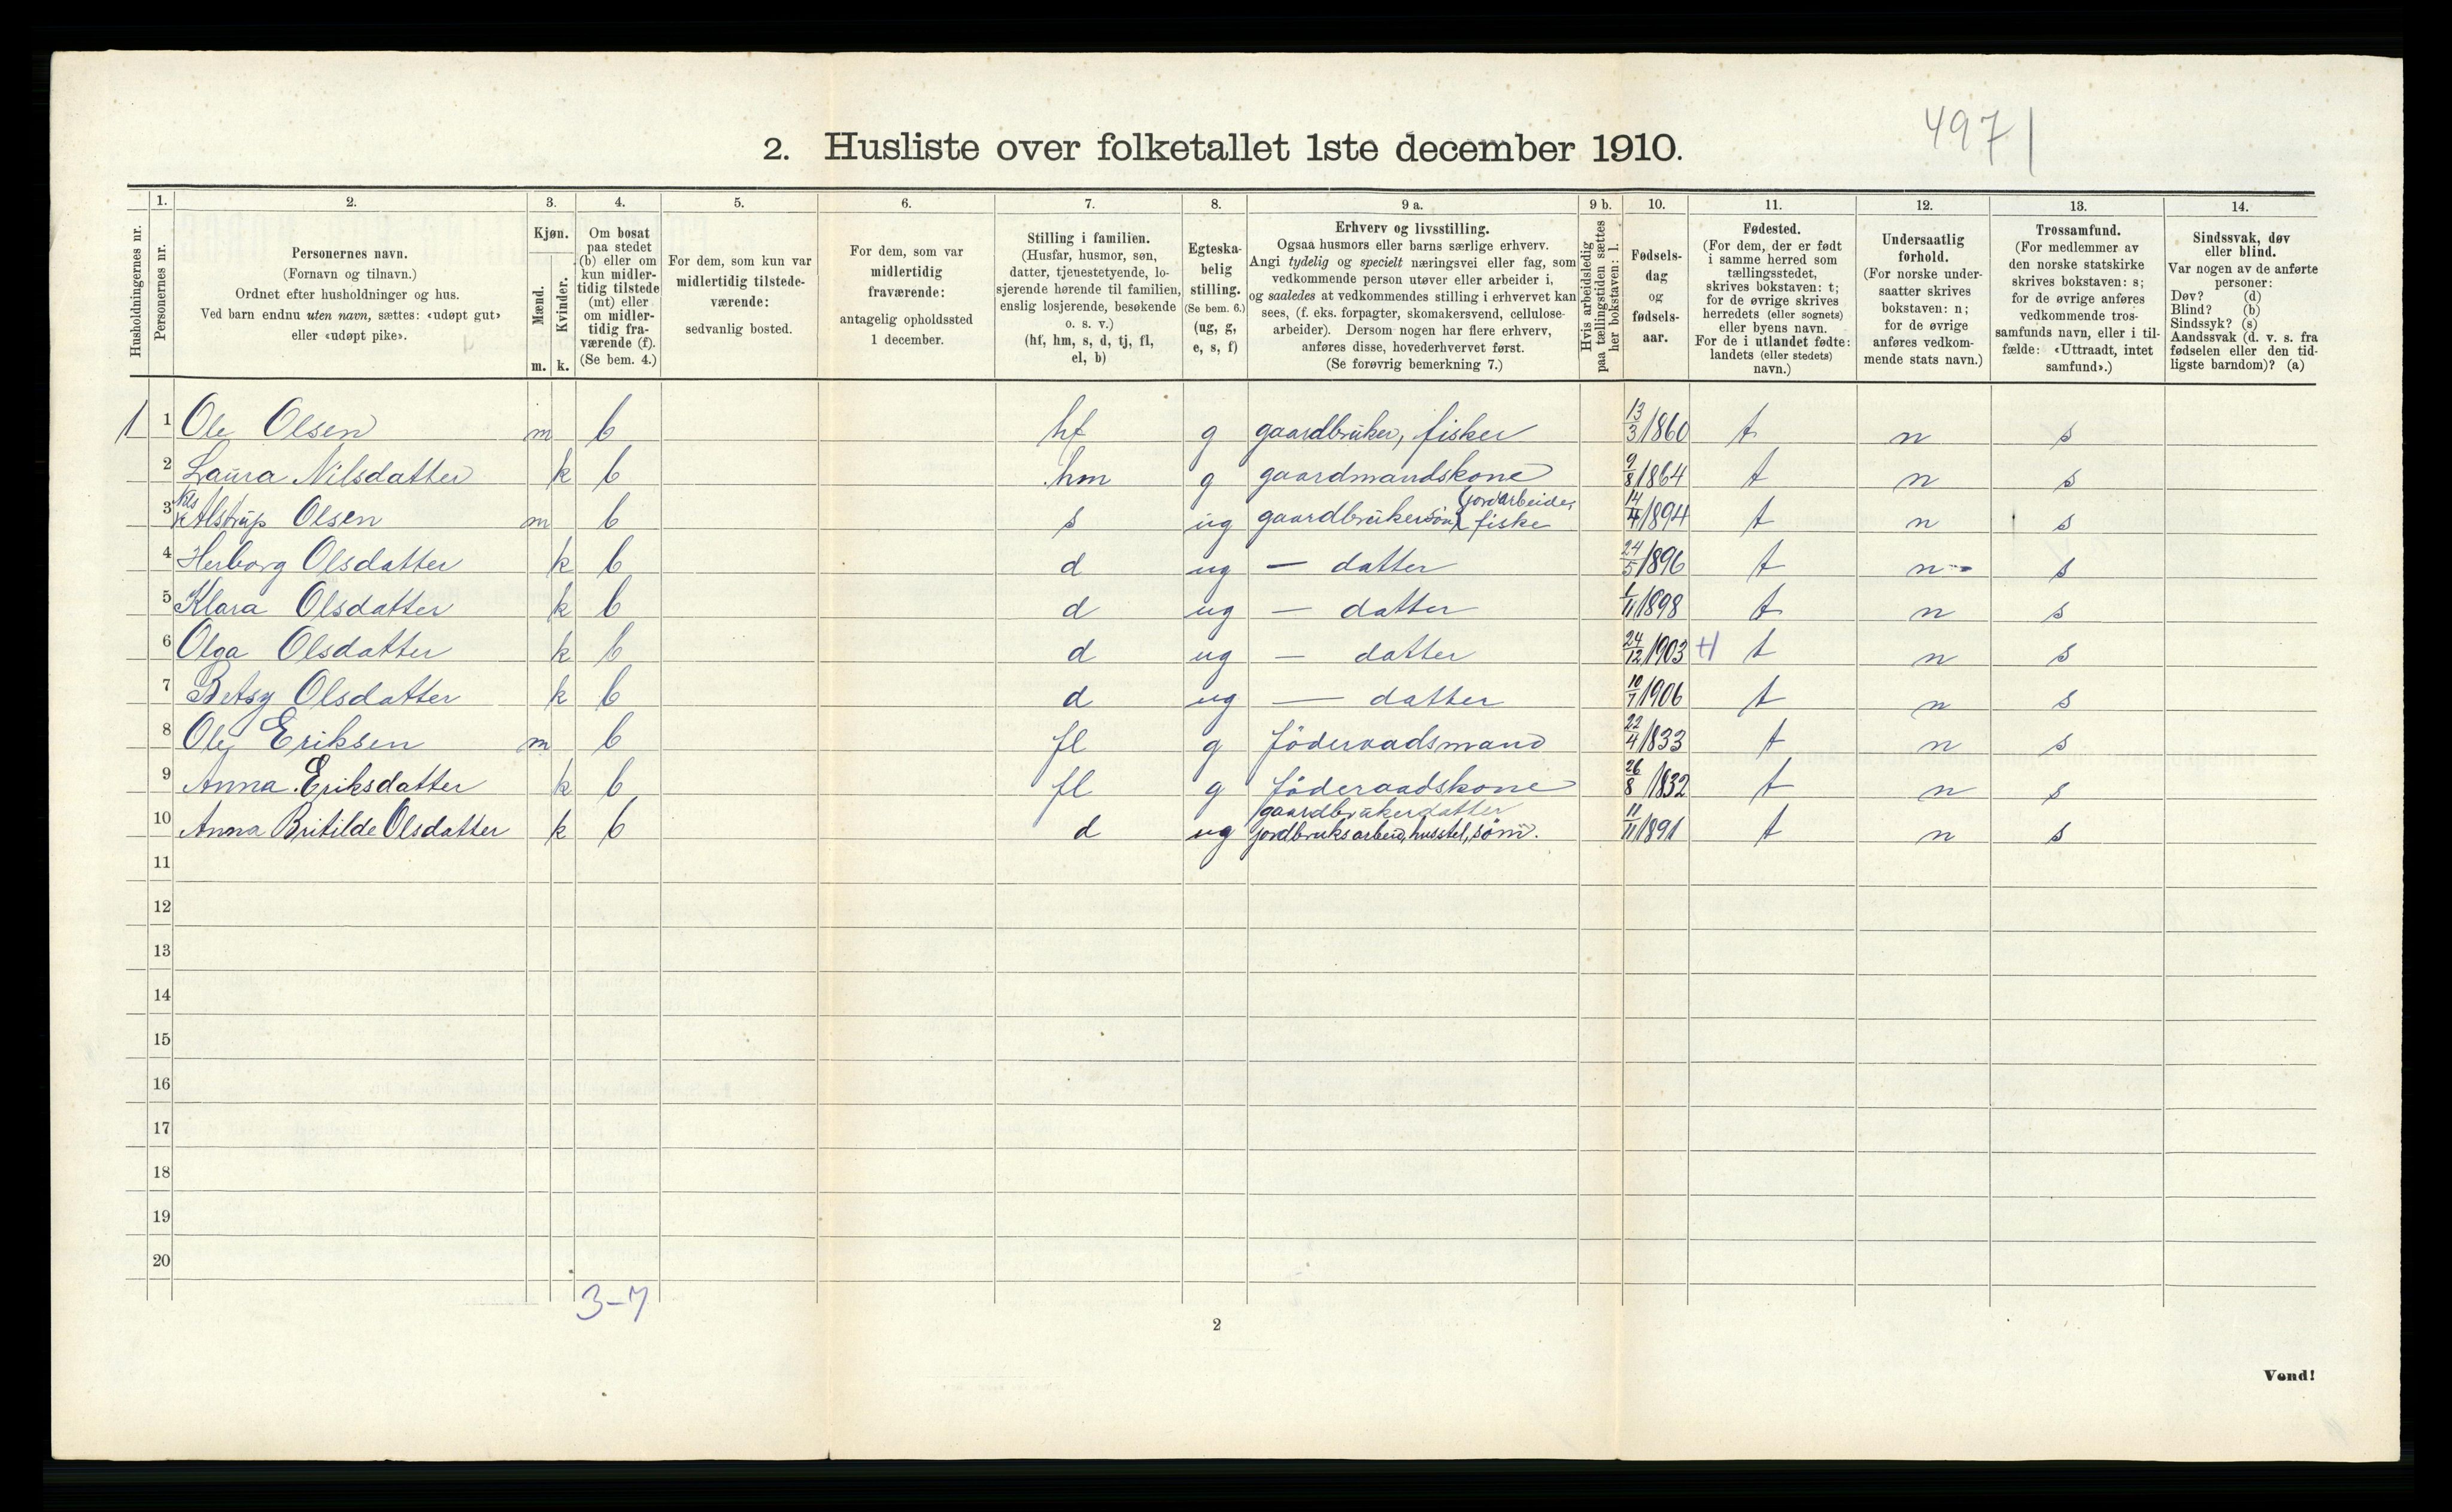 497
2. Husliste over folketallet 1ste december 1910.
1. 2. 3. 4. 5. 6. 7. 8. 9 a. 9 b. 10. 11. 12. 13. 14.
Husholdningernes nr.
Personernes nr.
Personernes navn.
(Fornavn og tilnavn.)
Ordnet efter husholdninger og hus.
Ved barn endnu uten navn, sættes: «udøpt gut»
eller «udøpt pike».
Kjøn.
Mænd.
Kvinder.
m. k.
Om bosat
paa stedet
(b) eller om
kun midler-
tidig tilstede
(mt) eller
om midler-
tidig fra-
værende (f).
(Se bem. 4.)
For dem, som kun var
midlertidig tilstede-
værende:
sedvanlig bosted.
For dem, som var
midlertidig
fraværende:
antagelig opholdssted
1 december.
Stilling i familien.
(Husfar, husmor, søn,
datter, tjenestetyende, lo-
sjerende hørende til familien,
enslig losjerende, besøkende
o. s. v.)
(hf, hm, s, d, tj, fl,
el, b)
Egteska-
belig
stilling.
(Se bem. 6.)
(ug, g,
e, s, f)
Erhverv og livsstilling.
Ogsaa husmors eller barns særlige erhverv.
Angi tydelig og specielt næringsvei eller fag, som
vedkommende person utøver eller arbeider i,
og saaledes at vedkommendes stilling i erhvervet kan
sees, (f. eks. forpagter, skomakersvend, cellulose-
arbeider). Dersom nogen har flere erhverv,
anføres disse, hovederhvervet først.
(Se forøvrig bemerkning 7.)
Hvis arbeidsledig
paa tællingstiden sættes
her bokstaven: l.
Fødsels-
dag
og
fødsels-
aar.
Fødested.
(For dem, der er født
i samme herred som
tællingsstedet,
skrives bokstaven: t;
for de øvrige skrives
herredets (eller sognets)
eller byens navn.
For de i utlandet fødte:
landets (eller stedets)
navn.)
Undersaatlig
forhold.
(For norske under-
saatter skrives
bokstaven: n;
for de øvrige
anføres vedkom-
mende stats navn.)
Trossamfund.
(For medlemmer av
den norske statskirke
skrives bokstaven: s;
for de øvrige anføres
vedkommende tros-
samfunds navn, eller i til-
fælde: «Uttraadt, intet
samfund».)
Sindssvak, døv
eller blind.
Var nogen av de anførte
personer:
Døv? (d)
Blind? (b)
Sindssyk? (s)
Aandssvak (d. v. s. fra
fødselen eller den tid-
ligste barndom)? (a)
1 1 Ole Olsen m b hf g gaardbruker, fisker 13/3 1860 t n s
2 Laura Nilsdatter k b hm g gaardmandskone 9/8 1864 t n s
jordarbeide,
3 Alstrup Olsen m b s ug gaardbrukersøn fiske 14/4 1894 t n s
4 Herborg Olsdatter k b d ug — datter 24/5 1896 t n s
5 Klara Olsdatter k b d ug — datter 1/11 1898 t n s
6 Olga Olsdatter k b d ug — datter 24/12 1903 t n s
7 Betsy Olsdatter k b d ug — datter 10/7 1906 t n s
8 Ole Eriksen m b fl g föderaadsmand 22/4 1833 t n s
9 Anna Eriksdatter k b fl g föderaadskone 26/8 1832 t n s
gaardbrukerdatter
10 Anna Britilde Olsdatter k b d ug jordbruksarbeid, husstel, søm. 11/11 1891 t n s
11
12
13
14
15
16
17
18
19
20
3–7
2
Vend!